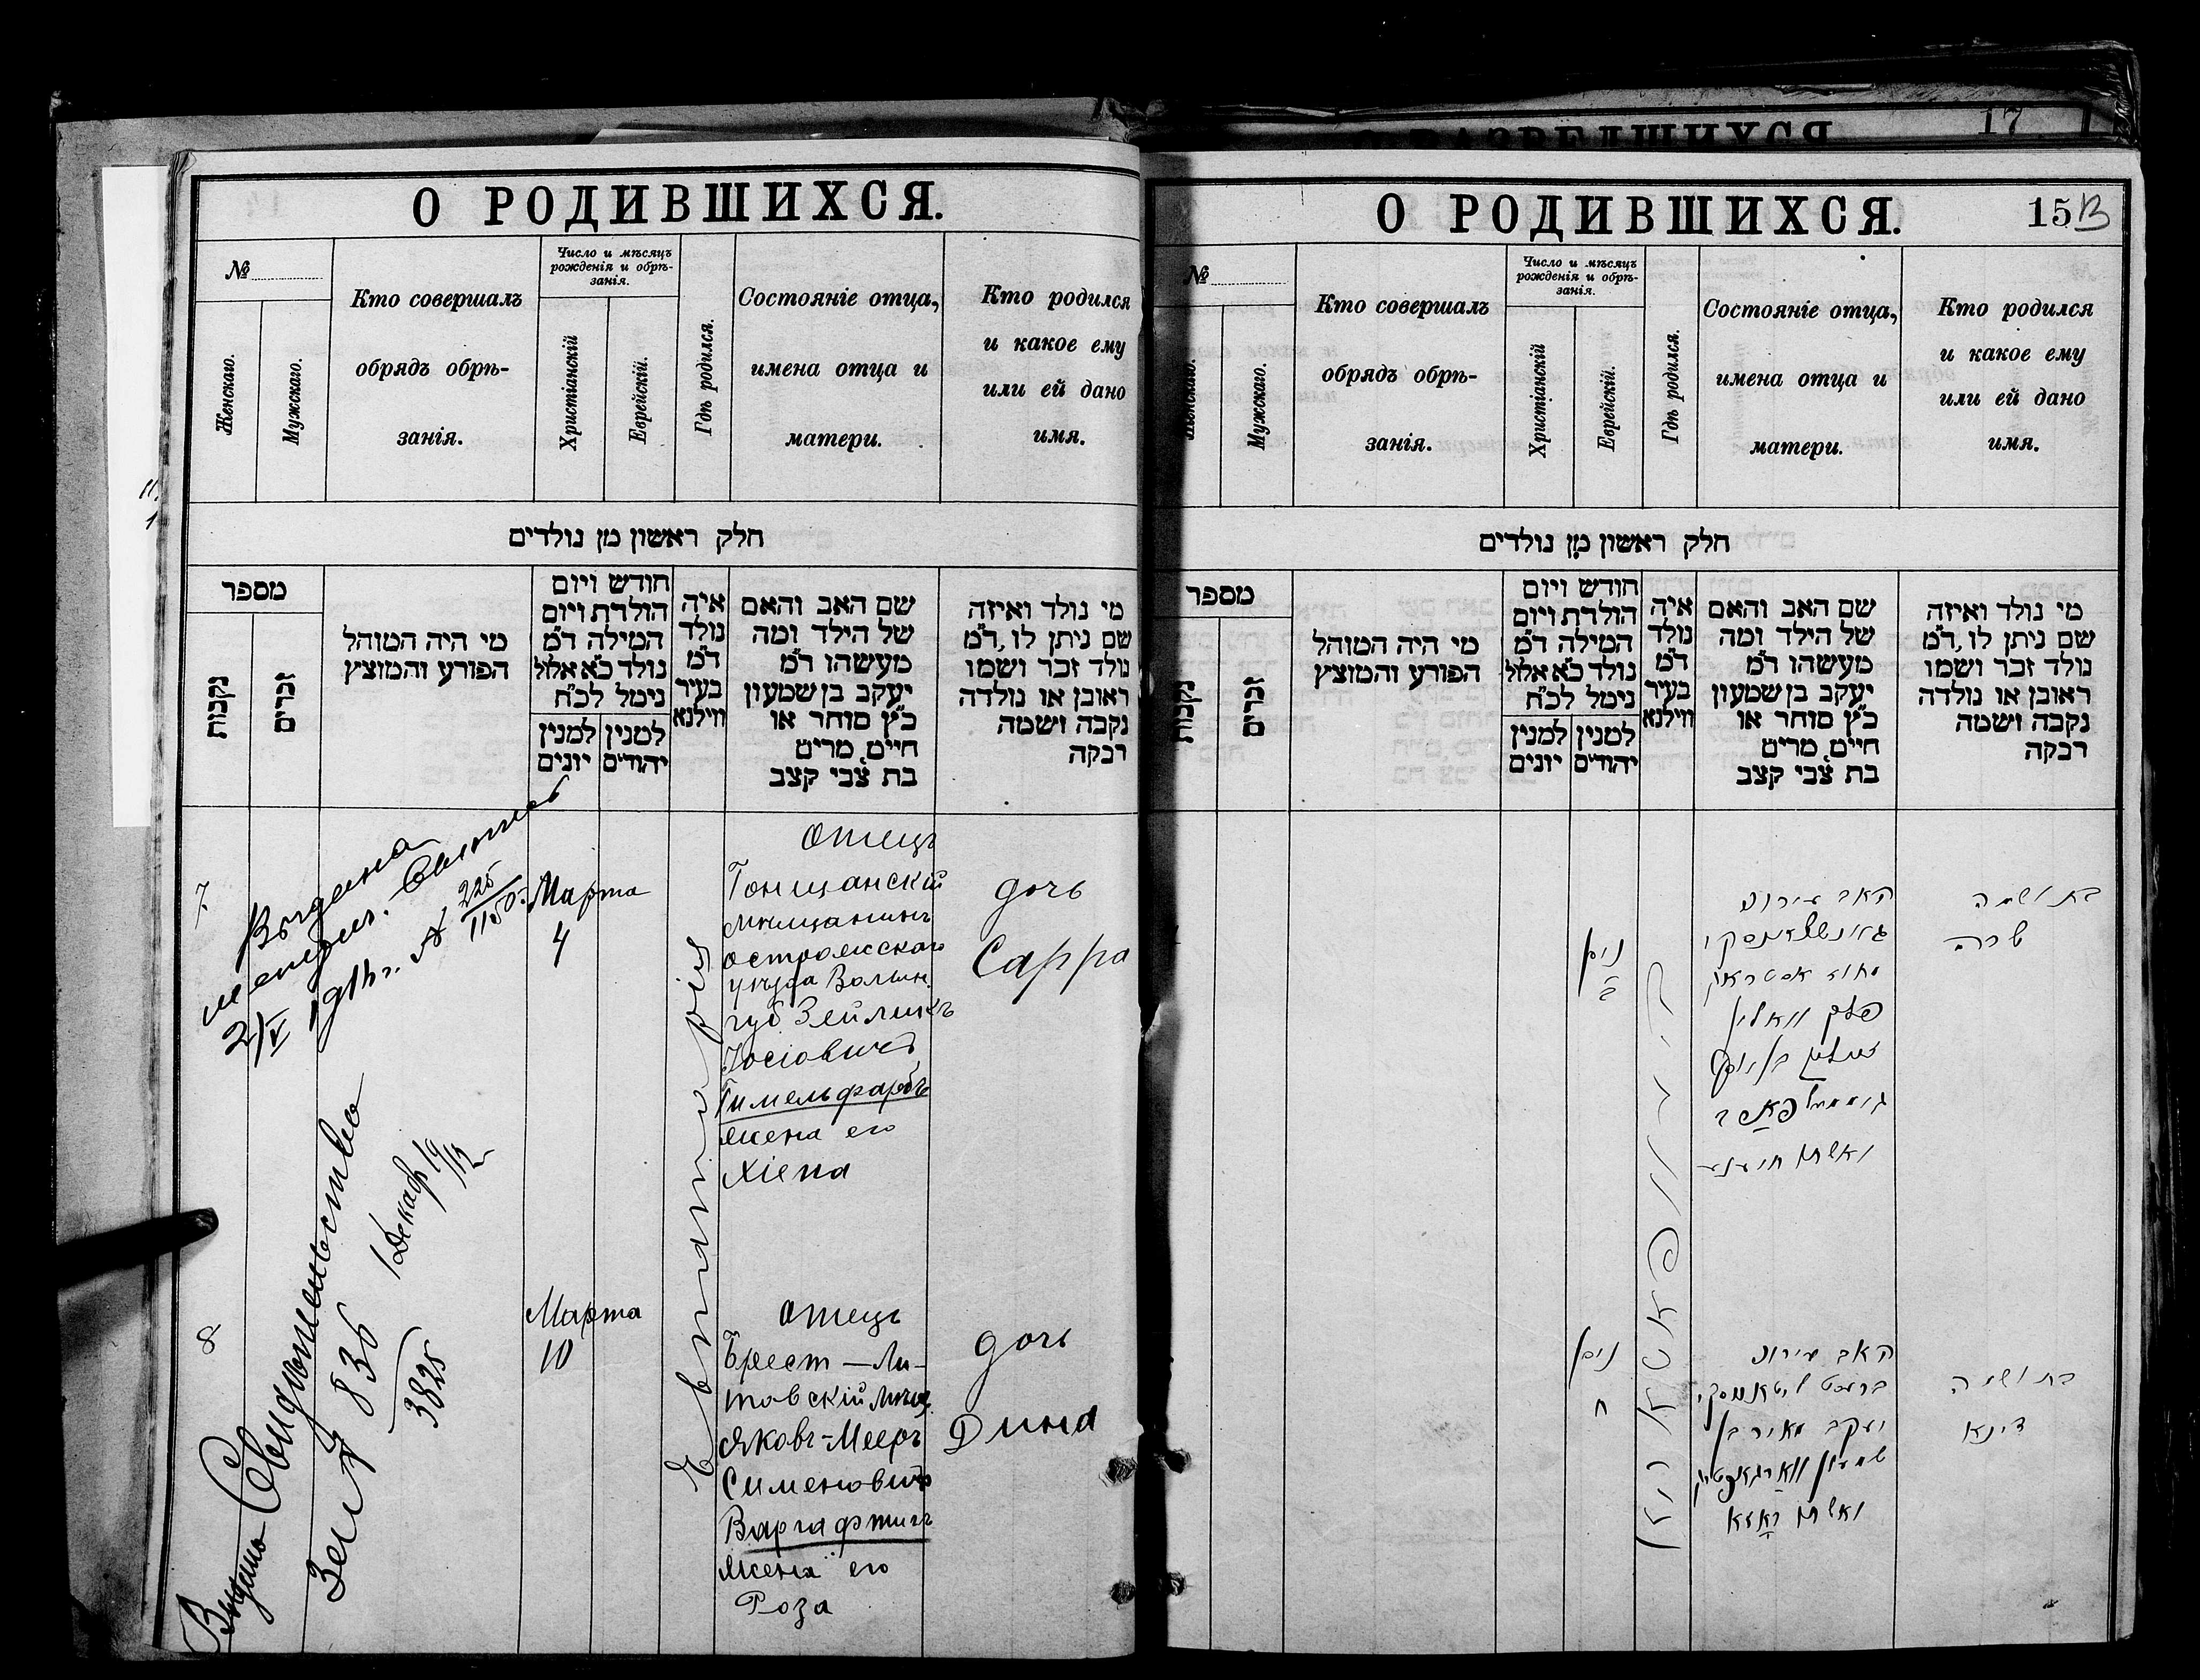 17
О РАЗВЕДШИХСЯ
О РОДИВШИХСЯ.
№
Женскаго.
Мужскаго.
Кто совершалъ
обрядъ обрѣ-
занія.
Число и мѣсяцъ
рожденія и обрѣ-
занія.
Христіанскій
Еврейскій.
Гдѣ родился.
Состояніе отца,
имена отца и
матери.
Кто родился
и какое ему
или ей дано
имя.
חלק ראשון מן נולדים
מספר
נקבות
זכרים
מי היה המוהל
הפורע והמוצץ
חודש ויום
הולדת ויום
המילה ד״מ
נולד כ״א אלול
נימל לכ״ח
למנין
יונים
למנין
יהודים
איה
נולד
ד״מ
בעיר
ווילנא
שם האב והאם
של הילד ומה
מעשהו ד״מ
יעקב בן שמעון
כ״ץ סוחר או
חיים, מרים
בת צבי קצב
מי נולד ואיזה
שם ניתן לו, ד״מ
נולד זכר ושמו
ראובן או נולדה
נקבה ושמה
רבקה
7
Выдана
метрич.
2/V 191 г. № 225/1150
Марта
4
Отецъ
Гощанскій
мѣщанинъ
острожскаго
уѣзда Волын.
губ. Зейликъ
Іосіовичъ
Гимельфарбъ
жена его
Хіена
дочь
Сарра
8
Выдано Свидѣтельство
За № 836
3825
Декаб 19/12
Марта
10
Евпаторія
Отецъ
Брест-Ли-
товскій мѣщ.
Яковъ-Мееръ
Сименовичъ
Варгафтигъ
жена его
Роза
дочь
Дина
О РОДИВШИХСЯ.
15 B
№
Женскаго.
Мужскаго.
Кто совершалъ
обрядъ обрѣ-
занія.
Число и мѣсяцъ
рожденія и обрѣ-
занія.
Христіанскій
Еврейскій.
Гдѣ родился.
Состояніе отца,
имена отца и
матери.
Кто родился
и какое ему
или ей дано
имя.
חלק ראשון מן נולדים
מספר
נקבות
זכרים
מי היה המוהל
הפורע והמוצץ
חודש ויום
הולדת ויום
המילה ד״מ
נולד כ״א אלול
נימל לכ״ח
למנין
יונים
למנין
יהודים
איה
נולד
ד״מ
בעיר
ווילנא
שם האב והאם
של הילד ומה
מעשהו ד״מ
יעקב בן שמעון
כ״ץ סוחר או
חיים, מרים
בת צבי קצב
מי נולד ואיזה
שם ניתן לו, ד״מ
נולד זכר ושמו
ראובן או נולדה
נקבה ושמה
רבקה
ניסן
ב
האב עירוני
מחוז אסטראג
פלך וואלין
זעליג בן יוסף
גימעלפארב
ואשתו חיענע
בת ושמה
שרה
ניסן
ח
האב עירוני
ברעסט ליטאווסקי
יעקב מאיר בן
שמעון ווארגאפטיג
ואשתו ראזא
בת ושמה
דינא